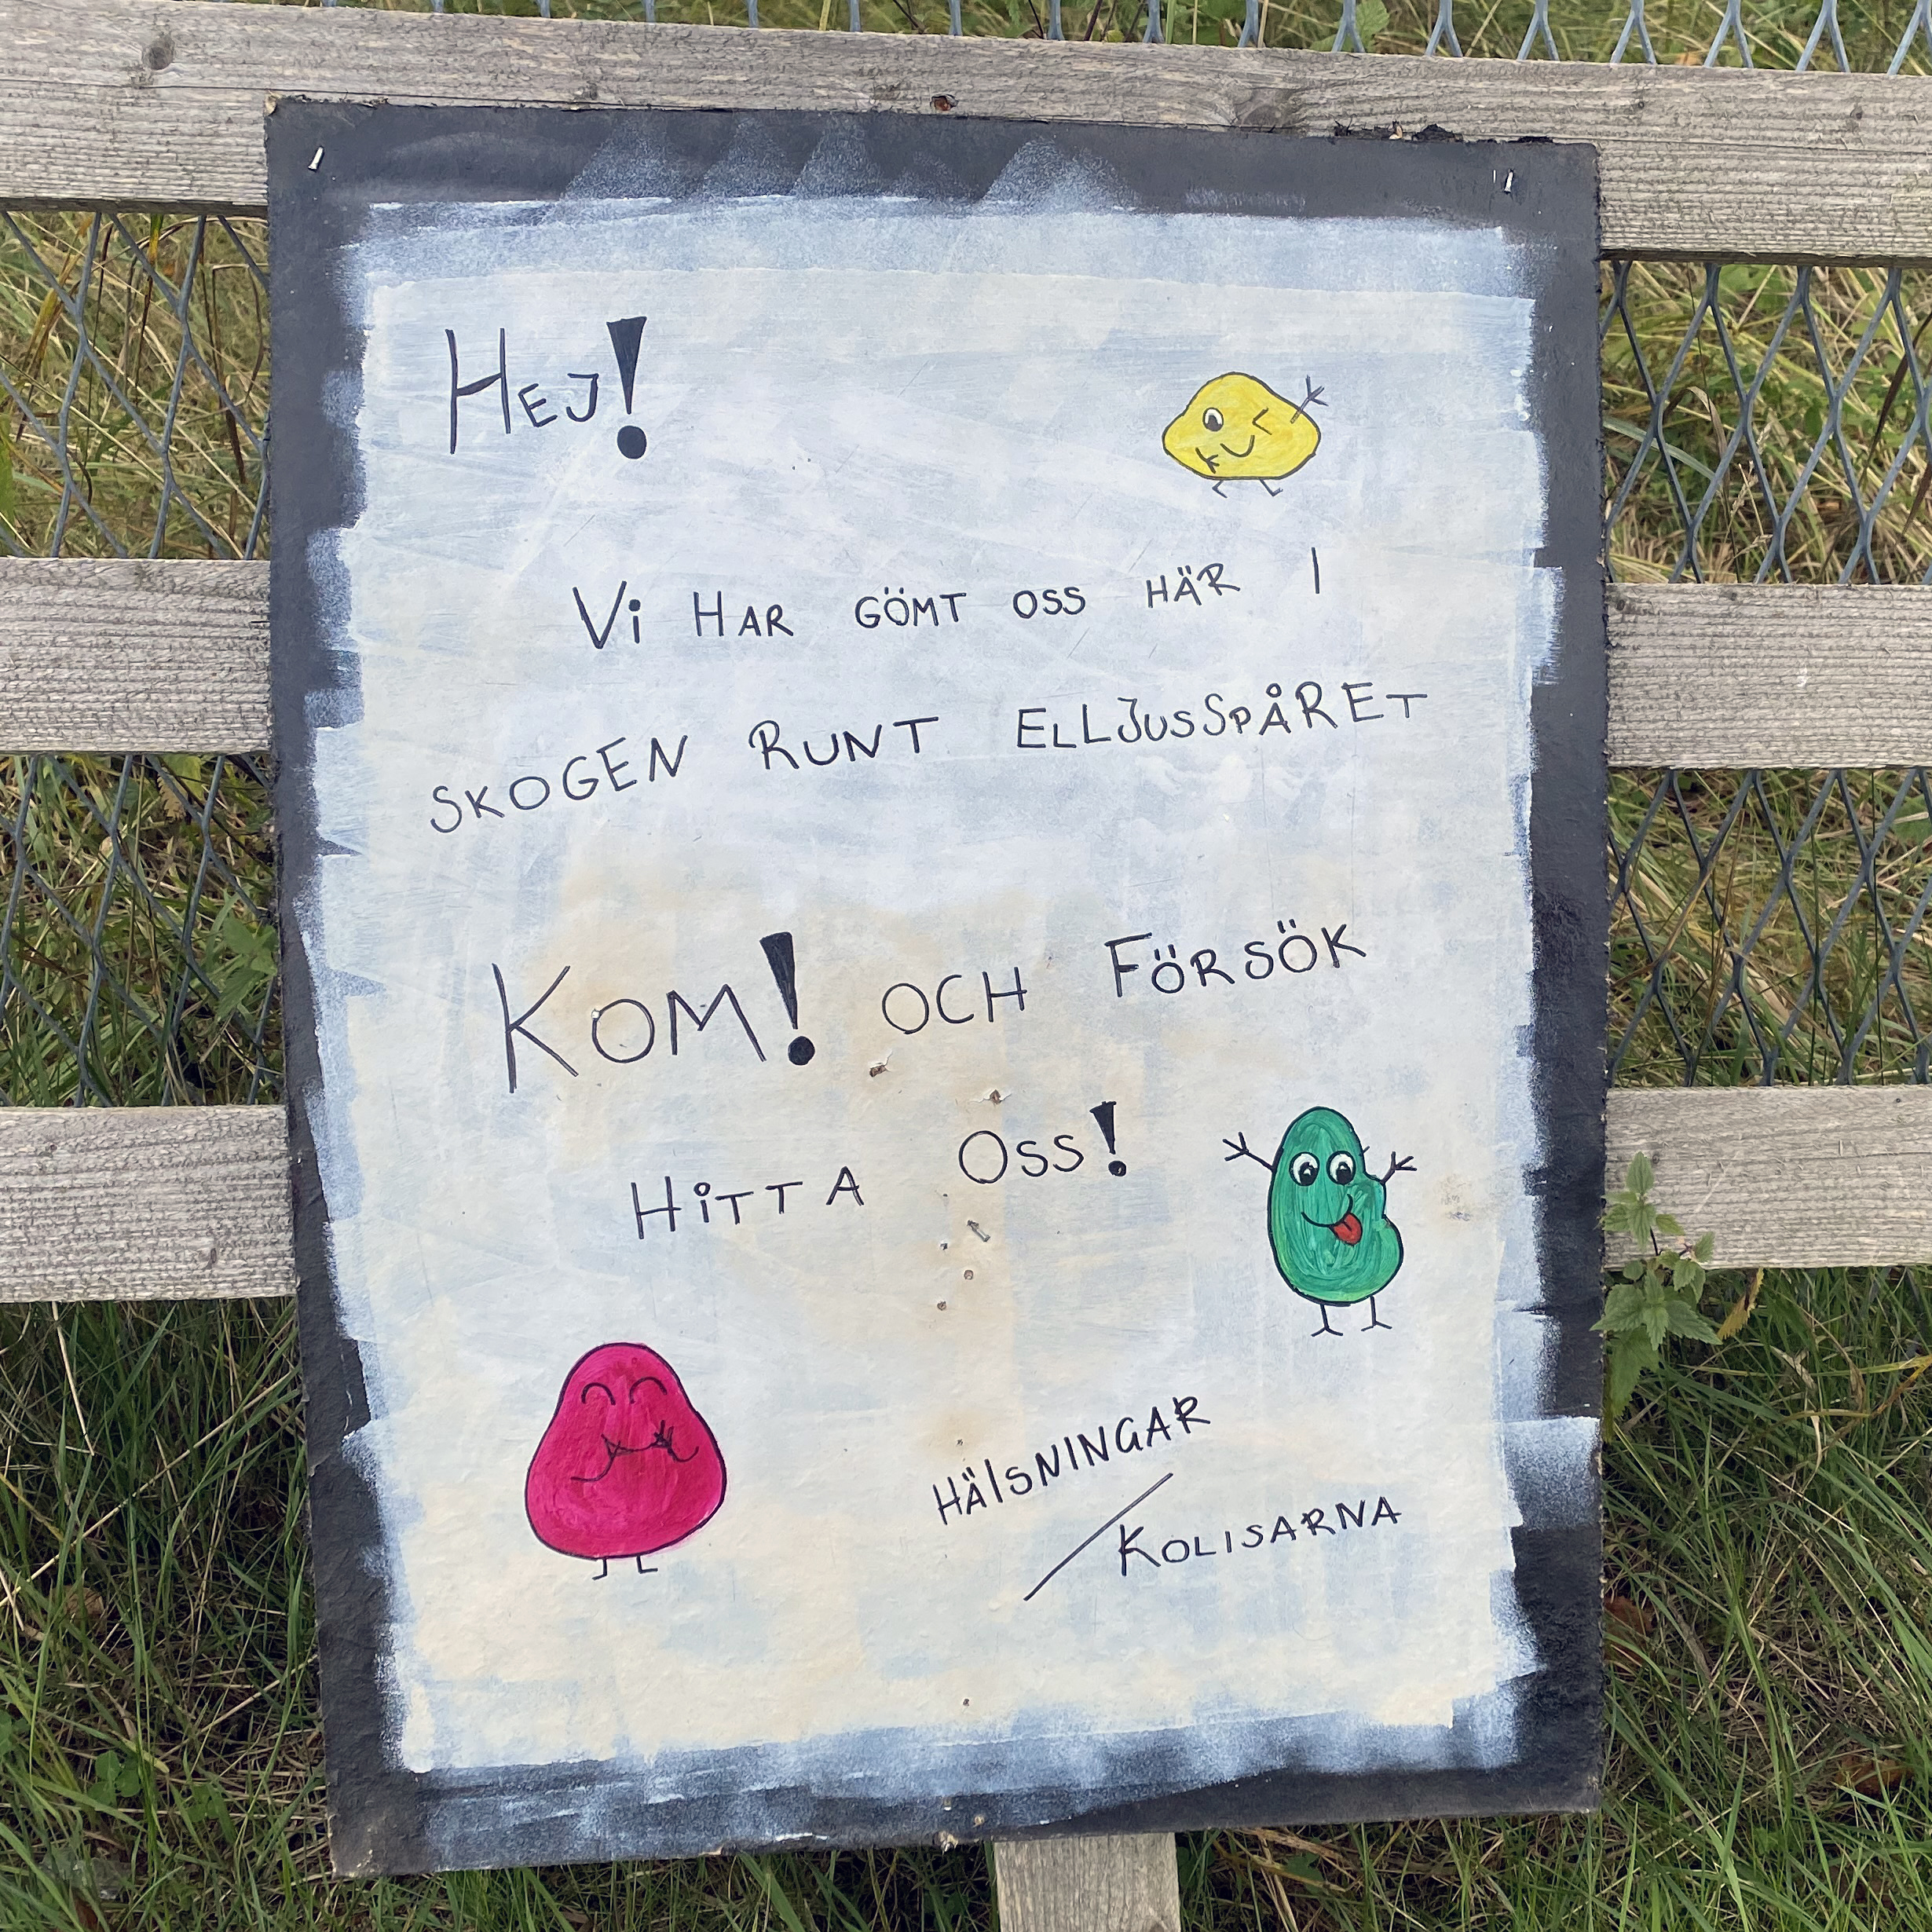 HEJ!
Vi HAR GÖMT OSS HÄR I
SKOGEN RUNT ELLJUSSPÅRET
KOM! OCH FÖRSÖK
HiTTA OSS!
HÄlSNINGAR
/KOLISARNA